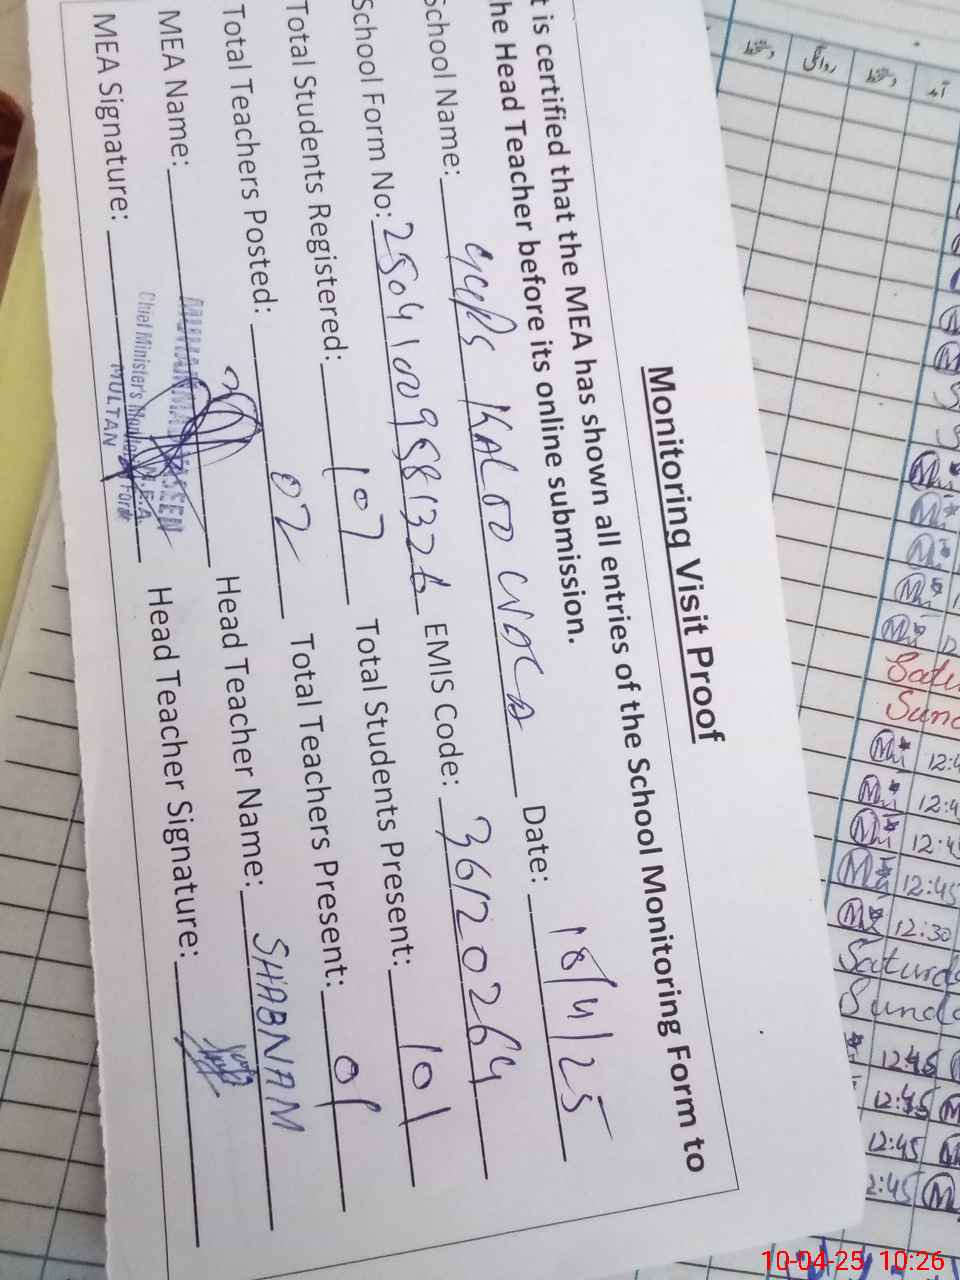 Monitoring Visit Proof
t is certified that the MEA has shown all entries of the School Monitoring Form to
he Head Teacher before its online submission.
School Name: GGPS KALOO WALA Date: 10/4/25
School Form No: 25041009581326 EMIS Code: 36120264
Total Students Registered: 107 Total Students Present: 101
Total Teachers Posted: 02 Total Teachers Present: 01
MEA Name: Head Teacher Name: SHABNAM
MEA Signature: Head Teacher Signature:
Chief Minister's
MULTAN
آمد دستخط روانگی دستخط
Satu
Sund
12:4
12:4
12:45
12:45
12:30
Saturda
Sunda
12:45
12:45
12:45
2:45
10-04-25 10:26